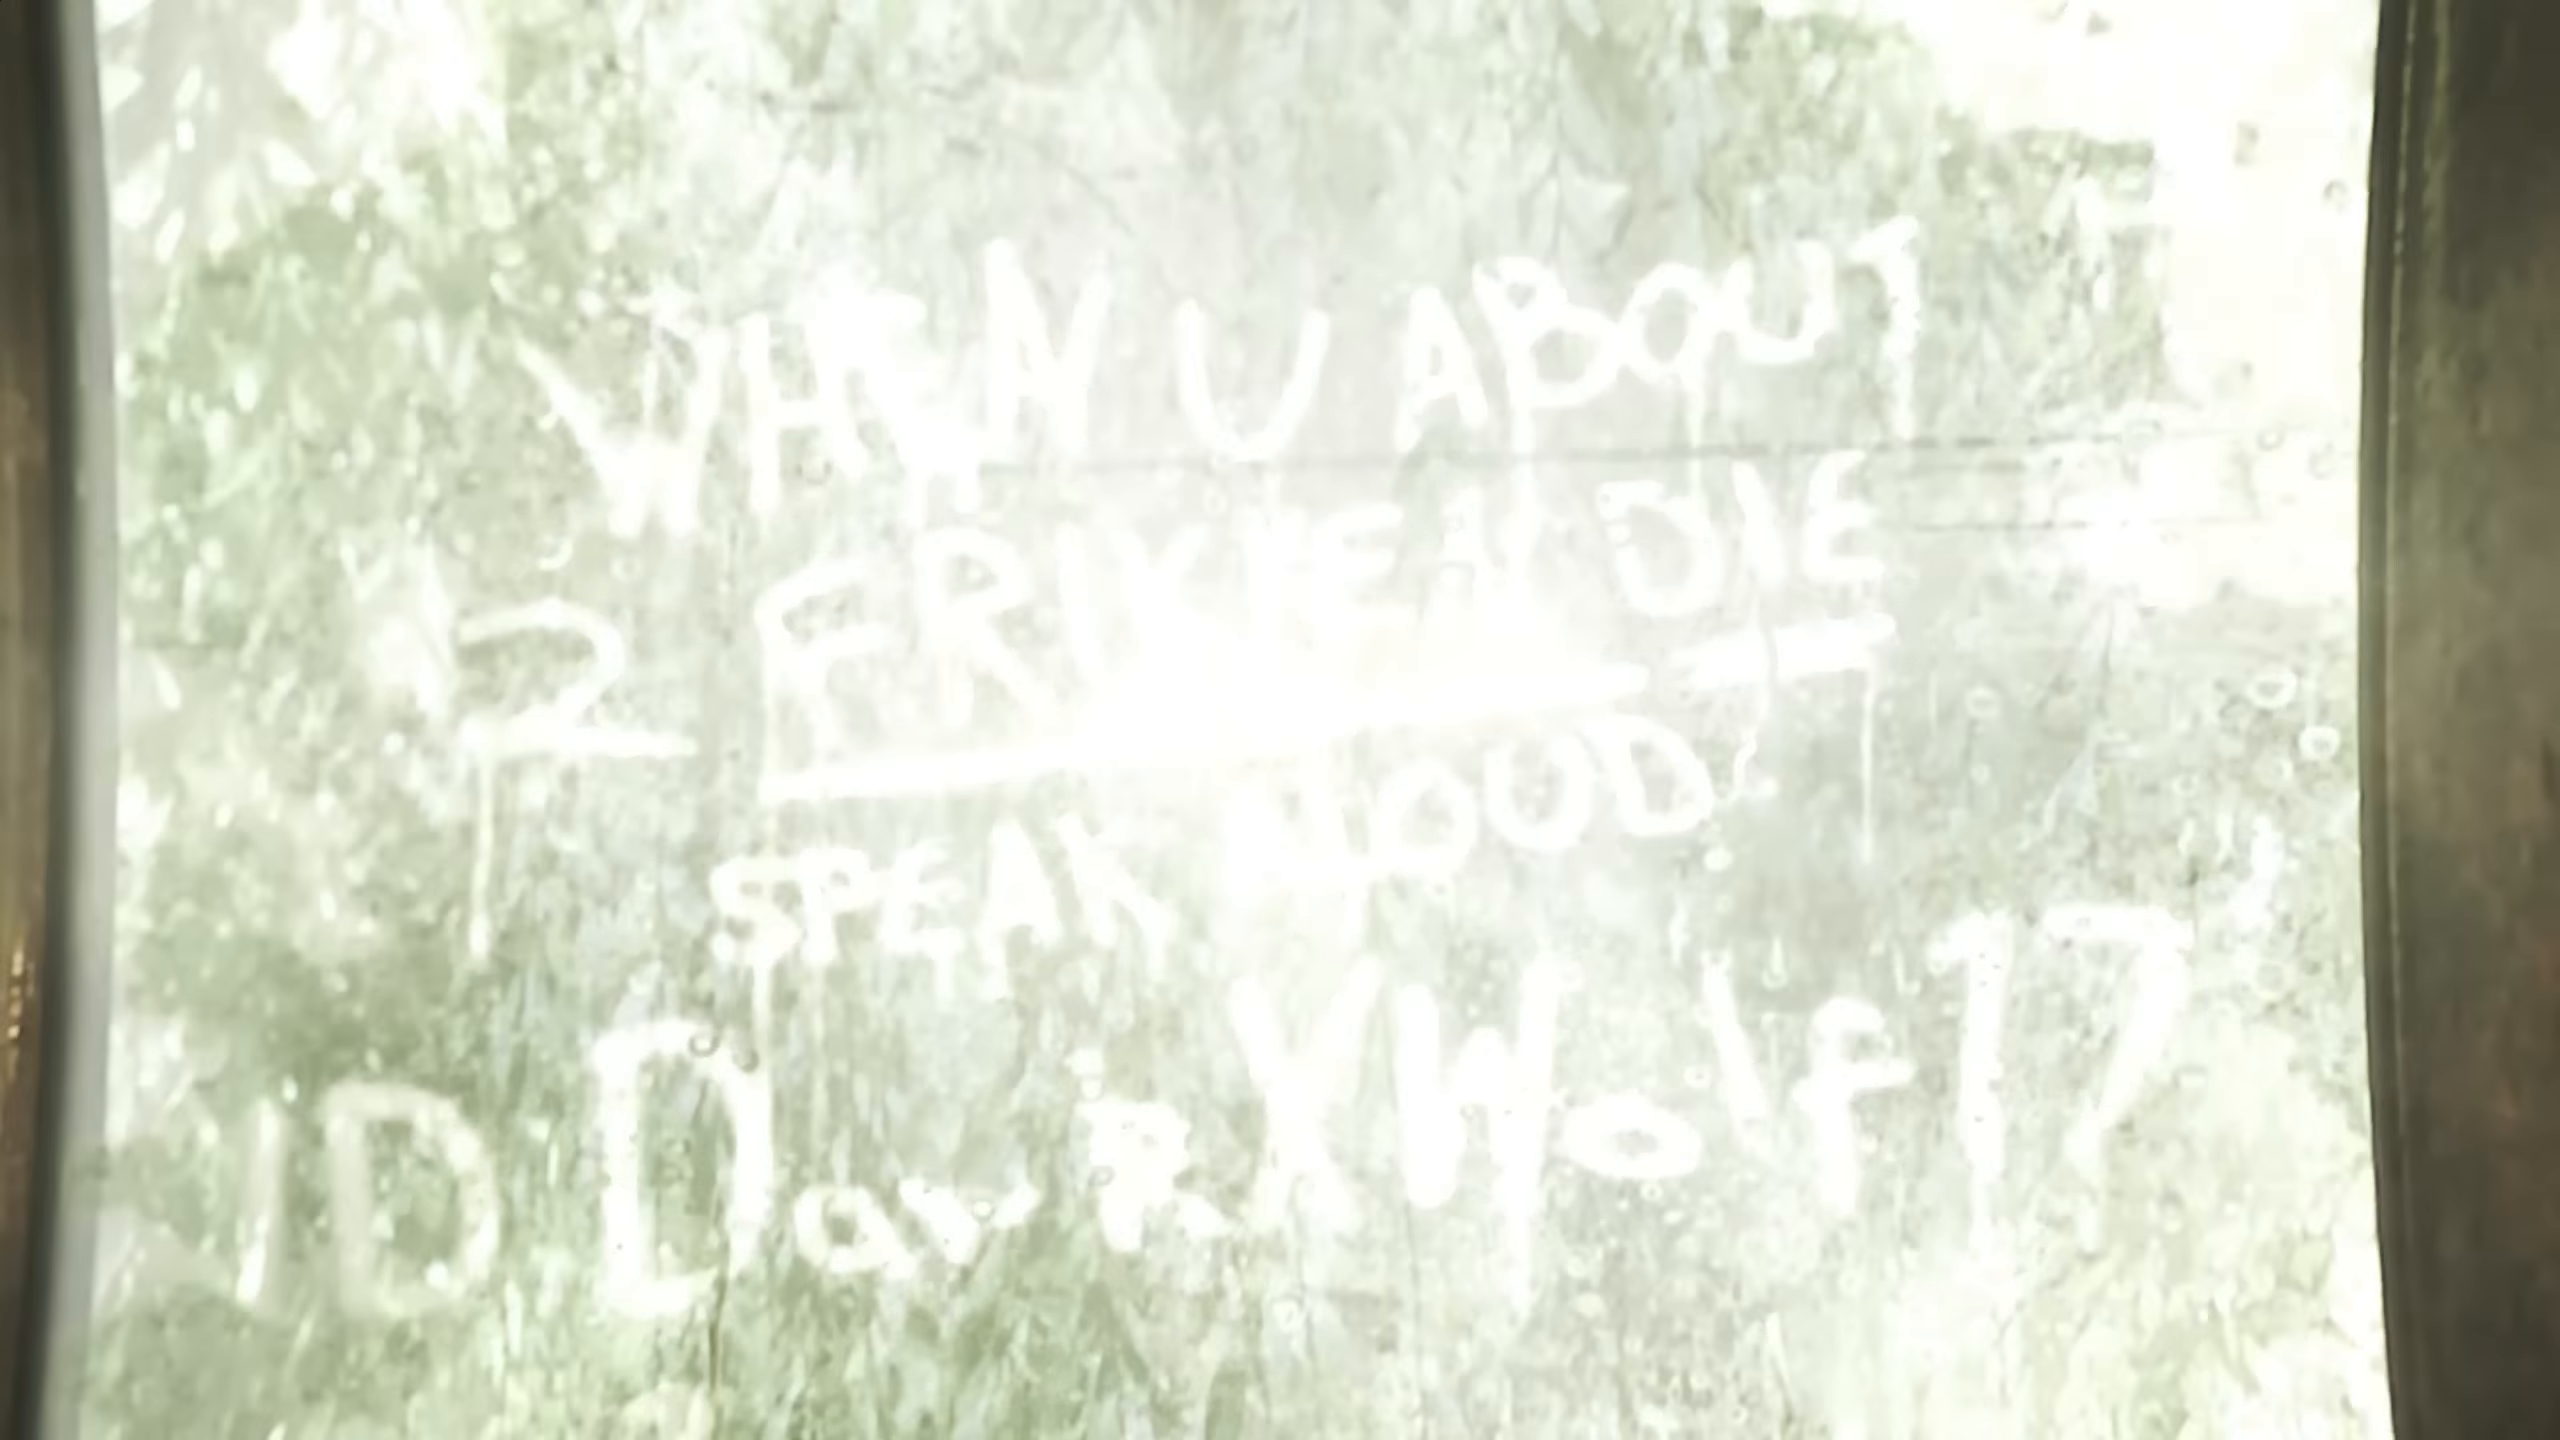 WHEN U ABOUT
2 FRIKIEN DIE
SPEAK ALOUD
ID DarkXWolf17